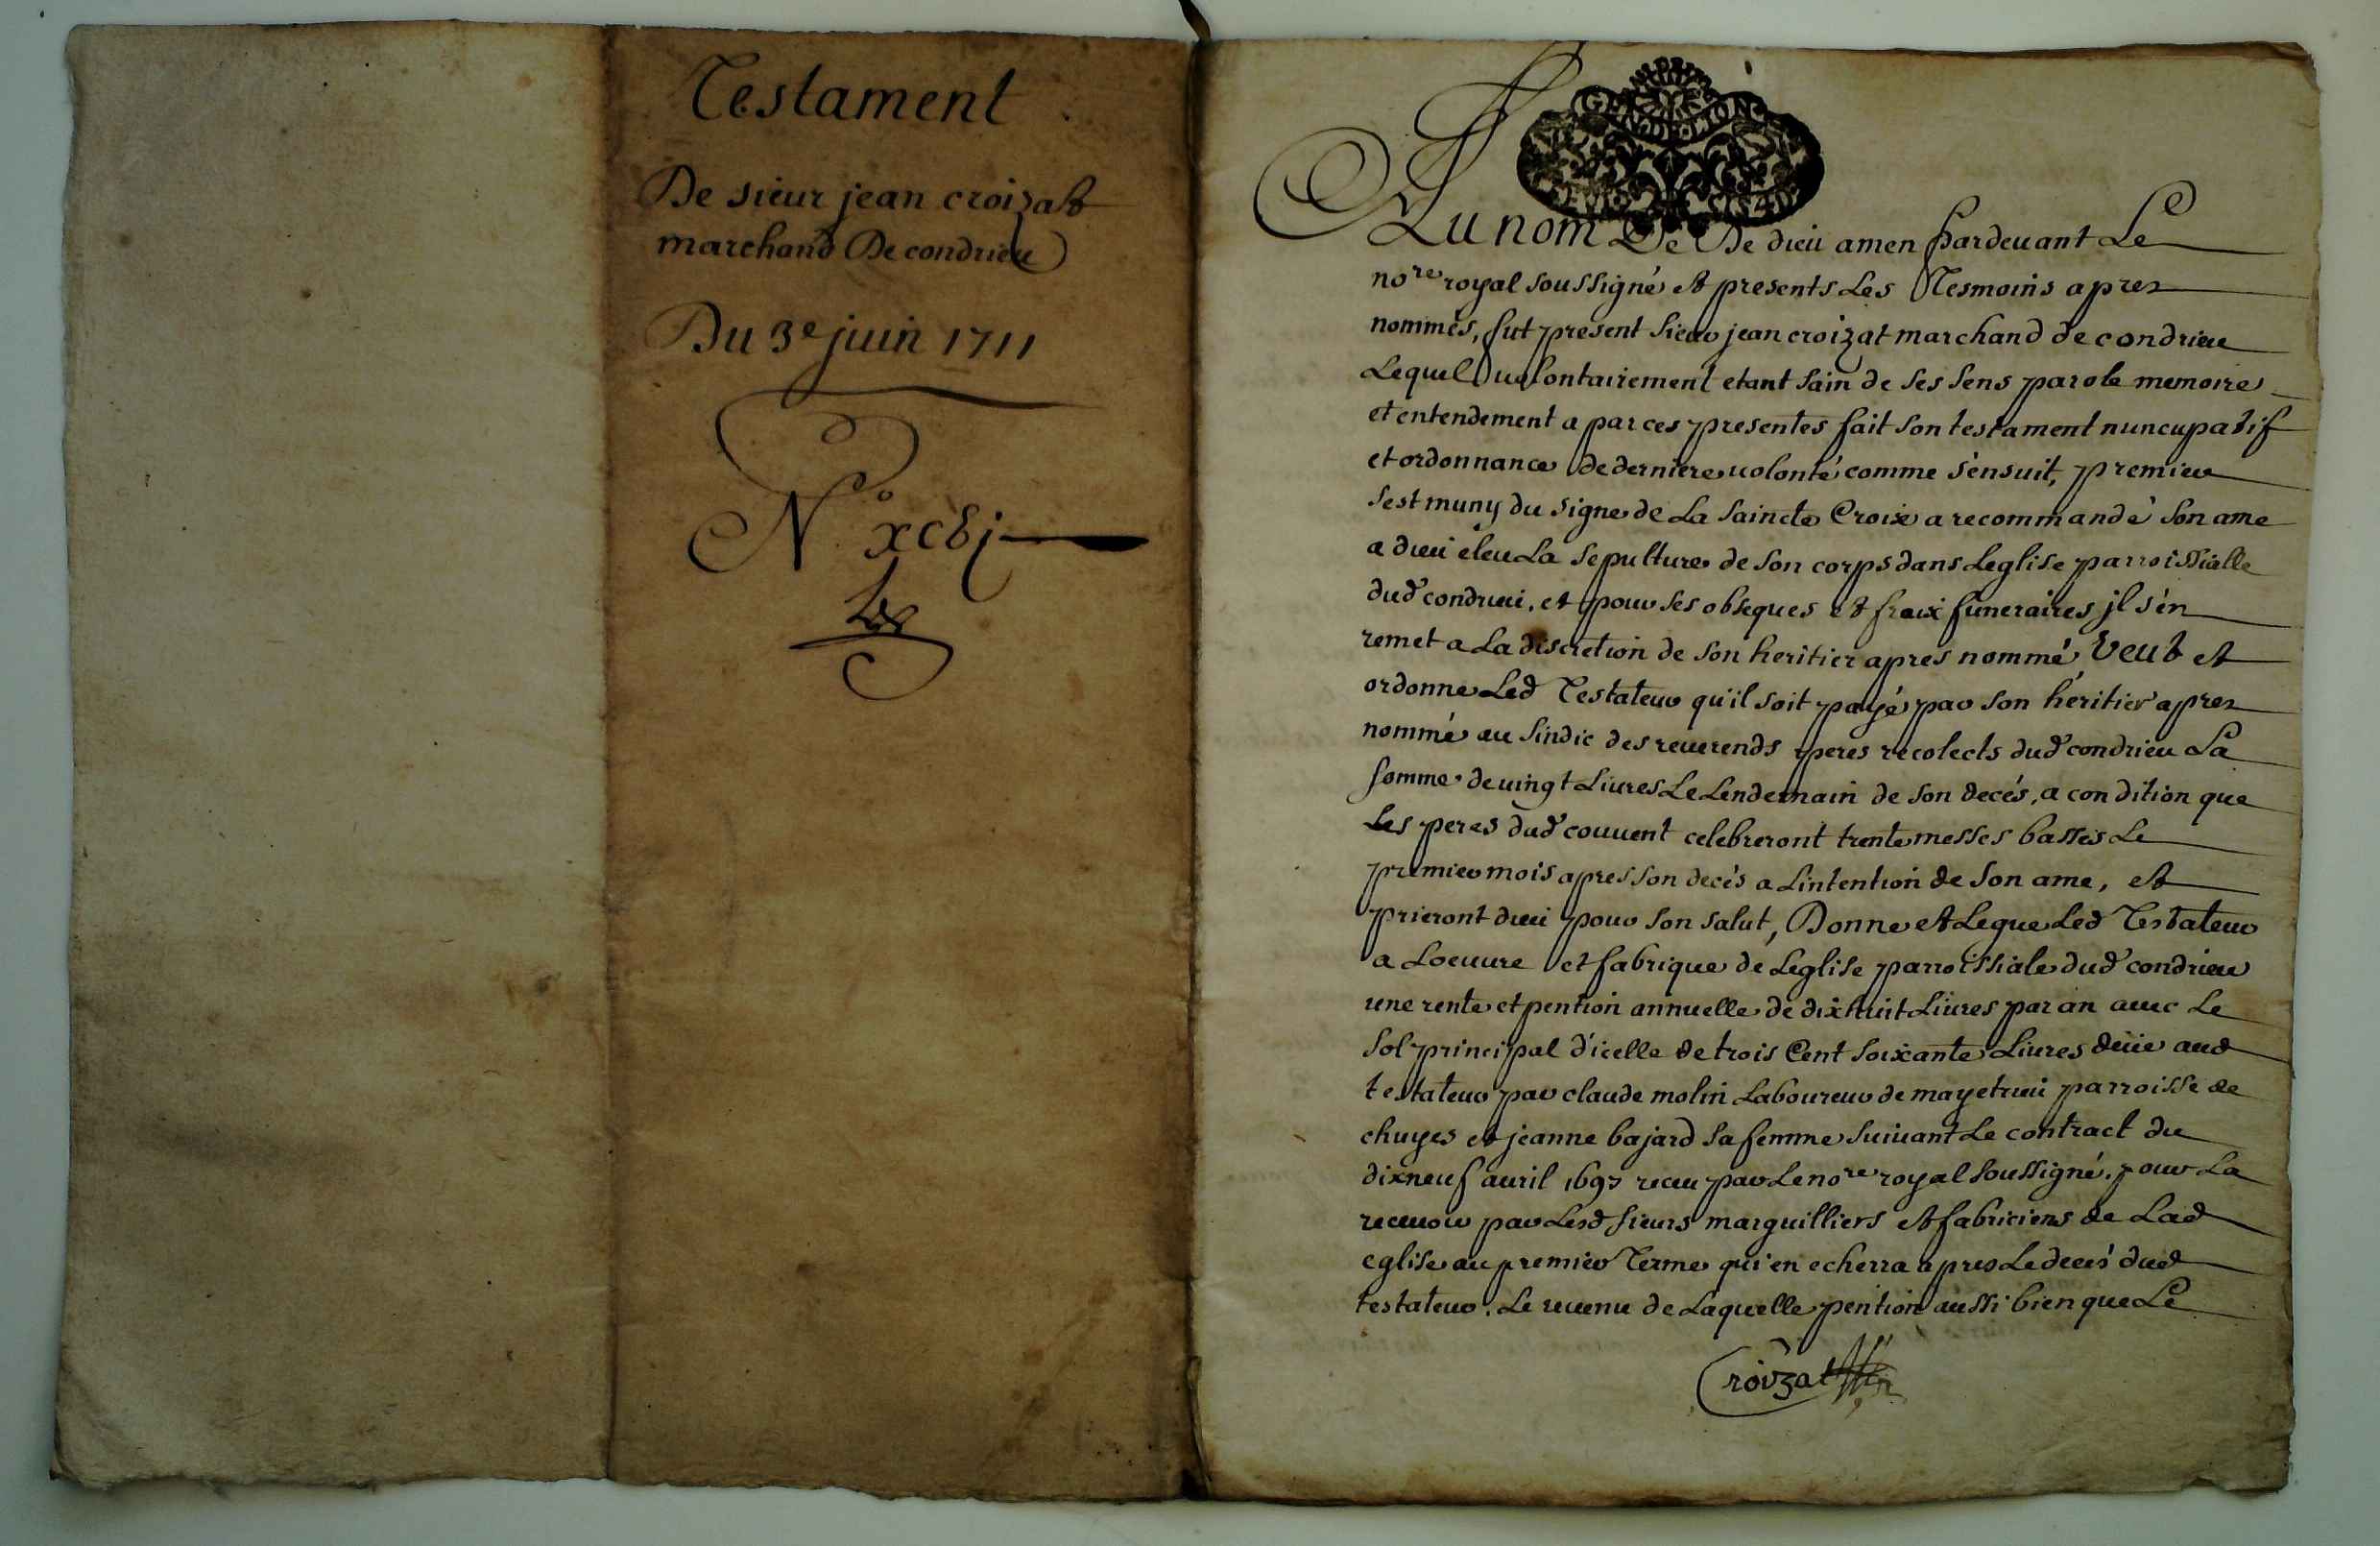 Testament
De sieur jean croizat
marchand De condrieu
Du 3e juin 1711
N.o xcvj
Au nom De De dieu amen pardevant Le
nore royal soussigné et presents Les Tesmoins apres
nommés, fut present sieur jean croizat marchand de condrieu
Lequel volontairement etant sain de ses sens parole memoire
et entendement a par ces presentes fait son testament nuncupatif
et ordonnance de derniere volonté comme s'ensuit, premier
sest muny du signe de La saincte Croix a recommandé son ame
a dieu eleu La sepulture de son corps dans Leglise parroissialle
dud condrieu, et pour ses obseques et fraix funeraires jl s'en
remet a La discretion de son heritier apres nommé Veut et
ordonne Led Testateur qu'il soit payé par son héritier apres
nommé au sindic des reverends peres recolects dud condrieu La
somme de vingt Livres Le Lendemain de son decés, a condition que
Les peres dud couvent celebreront trente messes basses Le
premier mois apres son decés a Lintention de son ame, et
prieront dieu pour son salut, Donne et Legue Led Testateur
a Loeuvre et fabrique de Leglise parroissiale dud condrieu
une rente et pention annuelle de dixhuit Livres par an avec Le
sol principal d'icelle de trois Cent soixante Livres deüe aud
testateur par claude molin Laboureur de mayetrieu parroisse de
chuyes et jeanne bajard sa femme suivant Le contract du
dixneuf avril 1697 receu par Le nore royal soussigné, pour La
recevoir par Lesd sieurs marguilliers et fabriciens de Lad
eglise au premier Terme qui en echerra apres Le decés dud
testateur. Le revenu de Laquelle pention aussi bien que Le
Croizat